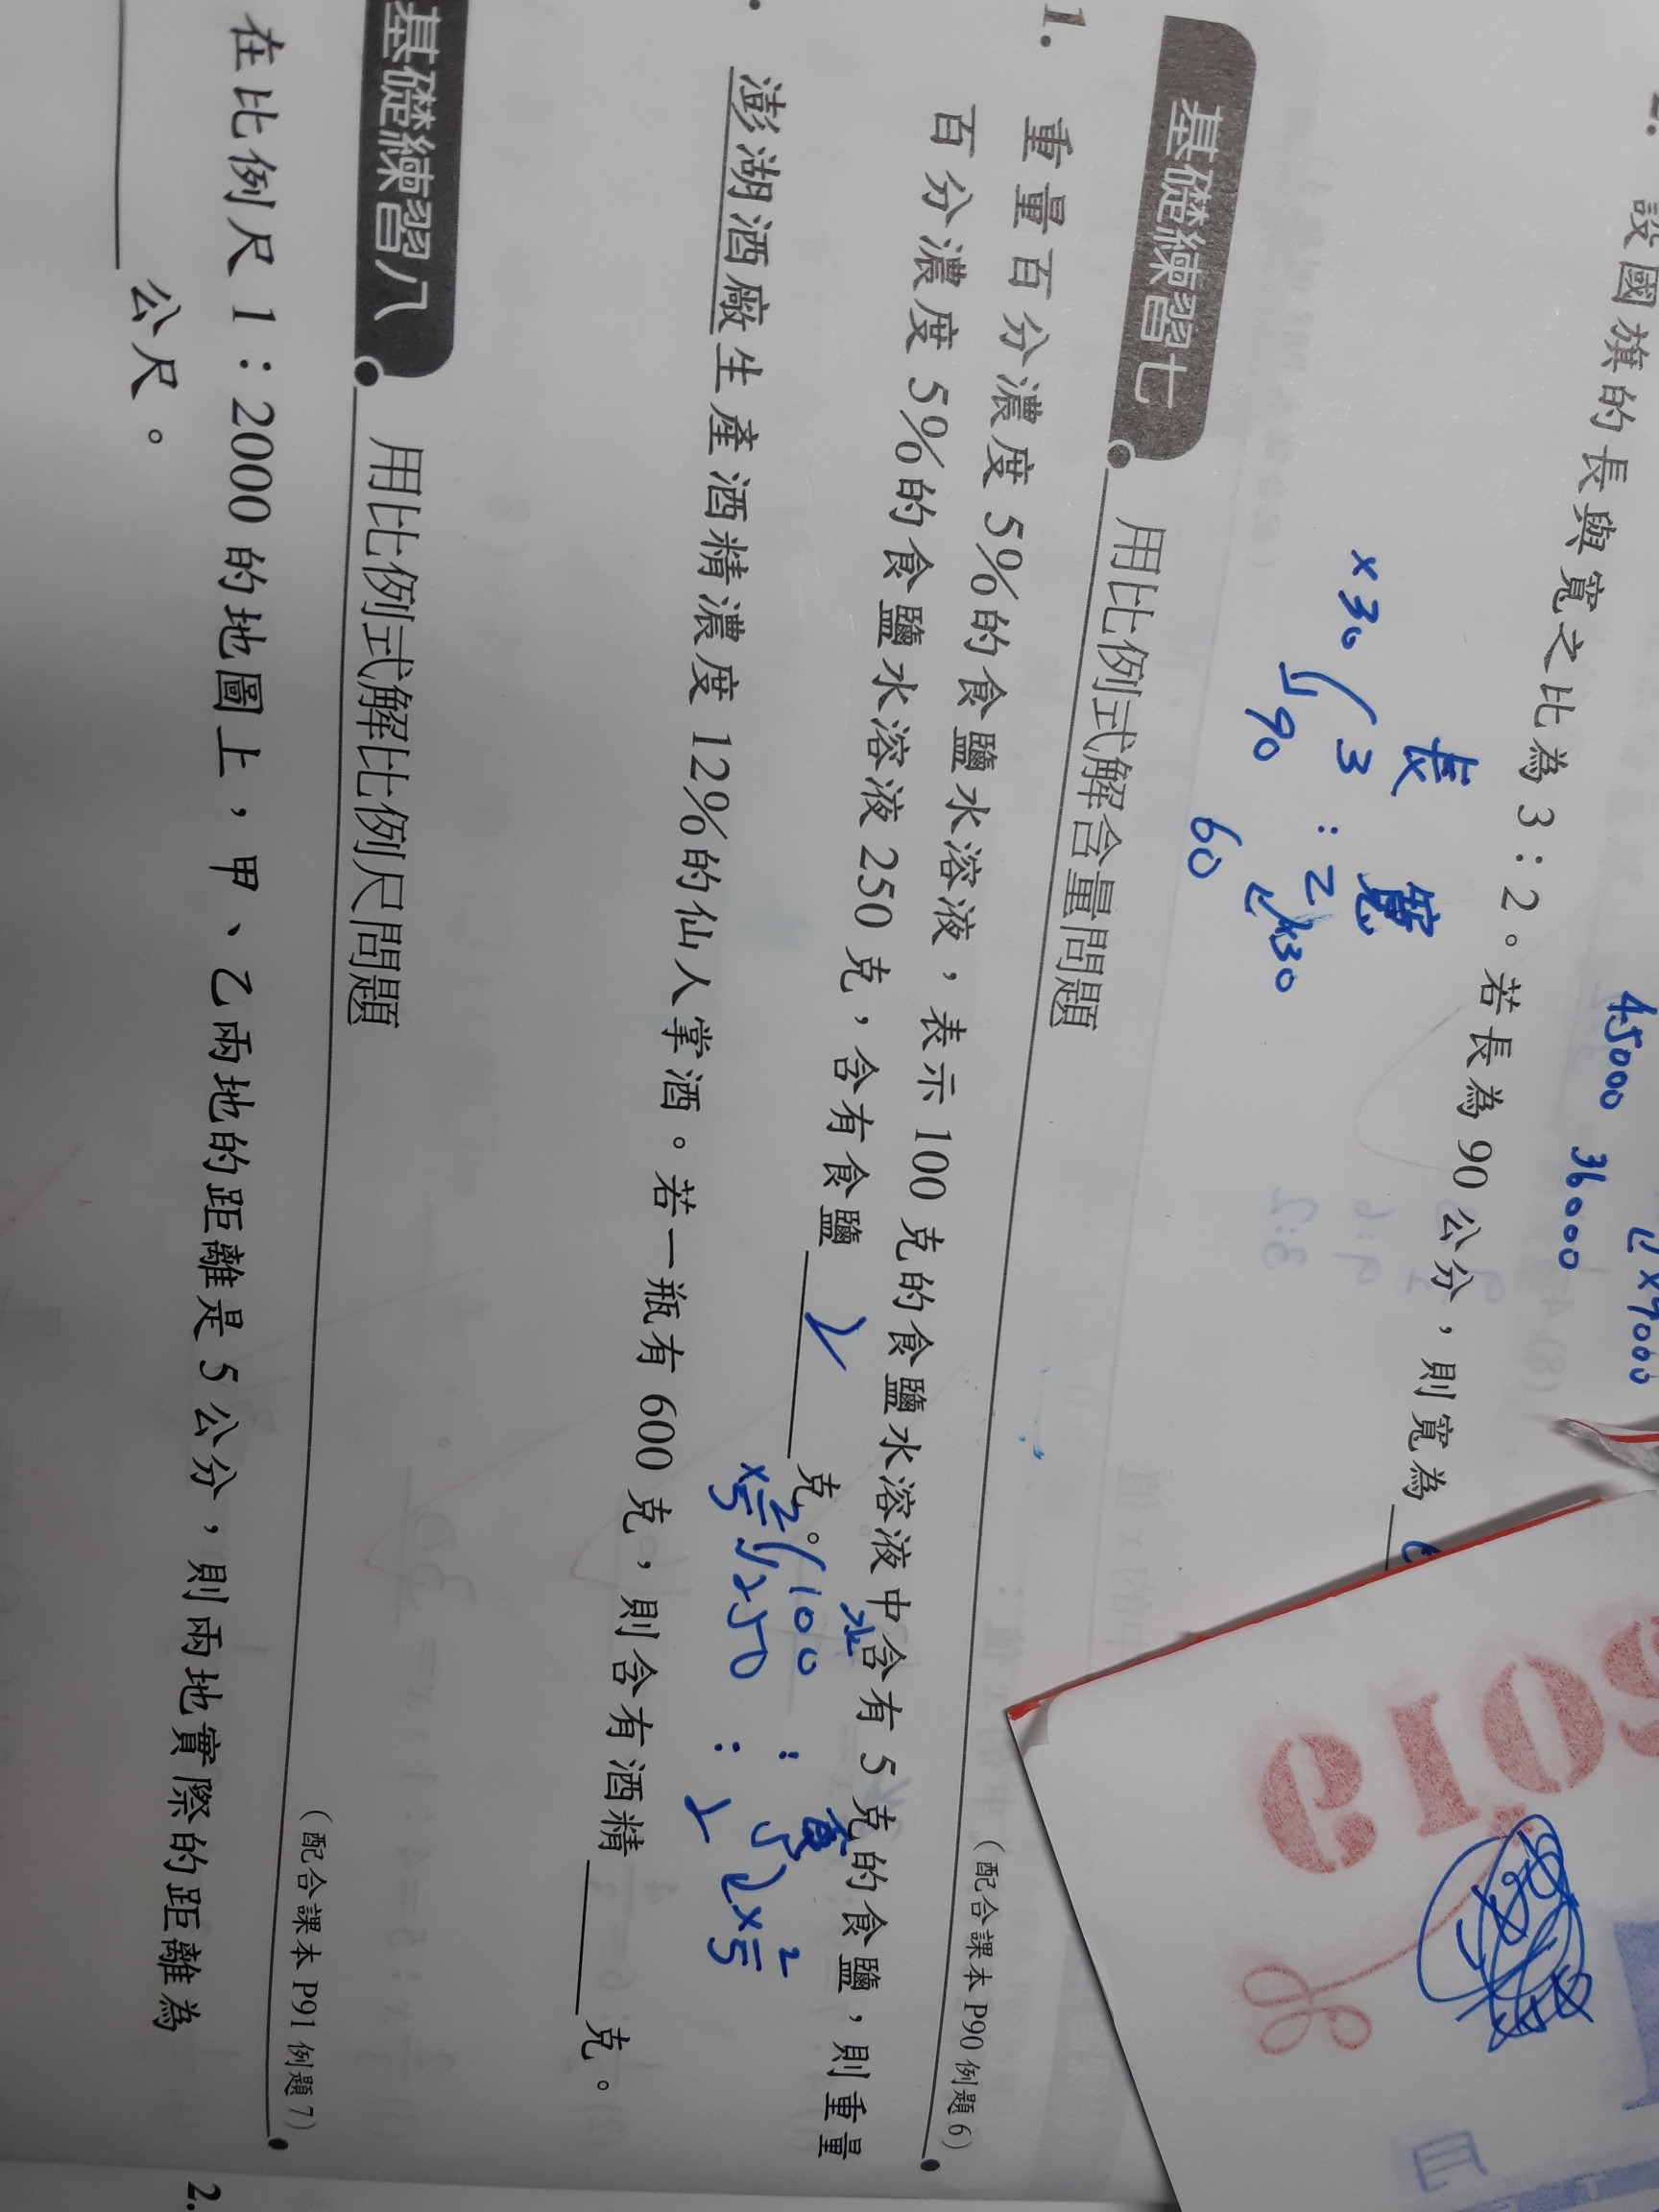 設國旗的長與寬之比為 3：2。若長為 90 公分，則寬為
45000 36000
x9000
長 : 寬
x30 3 : 2 x30
90 60
基礎練習七 用比例式解含量問題 (配合課本 P90 例題 6)
1. 重量百分濃度 5%的食鹽水溶液，表示 100 克的食鹽水溶液中含有 5 克的食鹽，則重量
百分濃度 5%的食鹽水溶液 250 克，含有食鹽 克。
水
100 : 5
250 :
澎湖酒廠生產酒精濃度 12%的仙人掌酒。若一瓶有 600 克，則含有酒精 克。
基礎練習八 用比例式解比例尺問題 (配合課本 P91 例題 7)
在比例尺 1：2000 的地圖上，甲、乙兩地的距離是 5 公分，則兩地實際的距離為
公尺。
2.